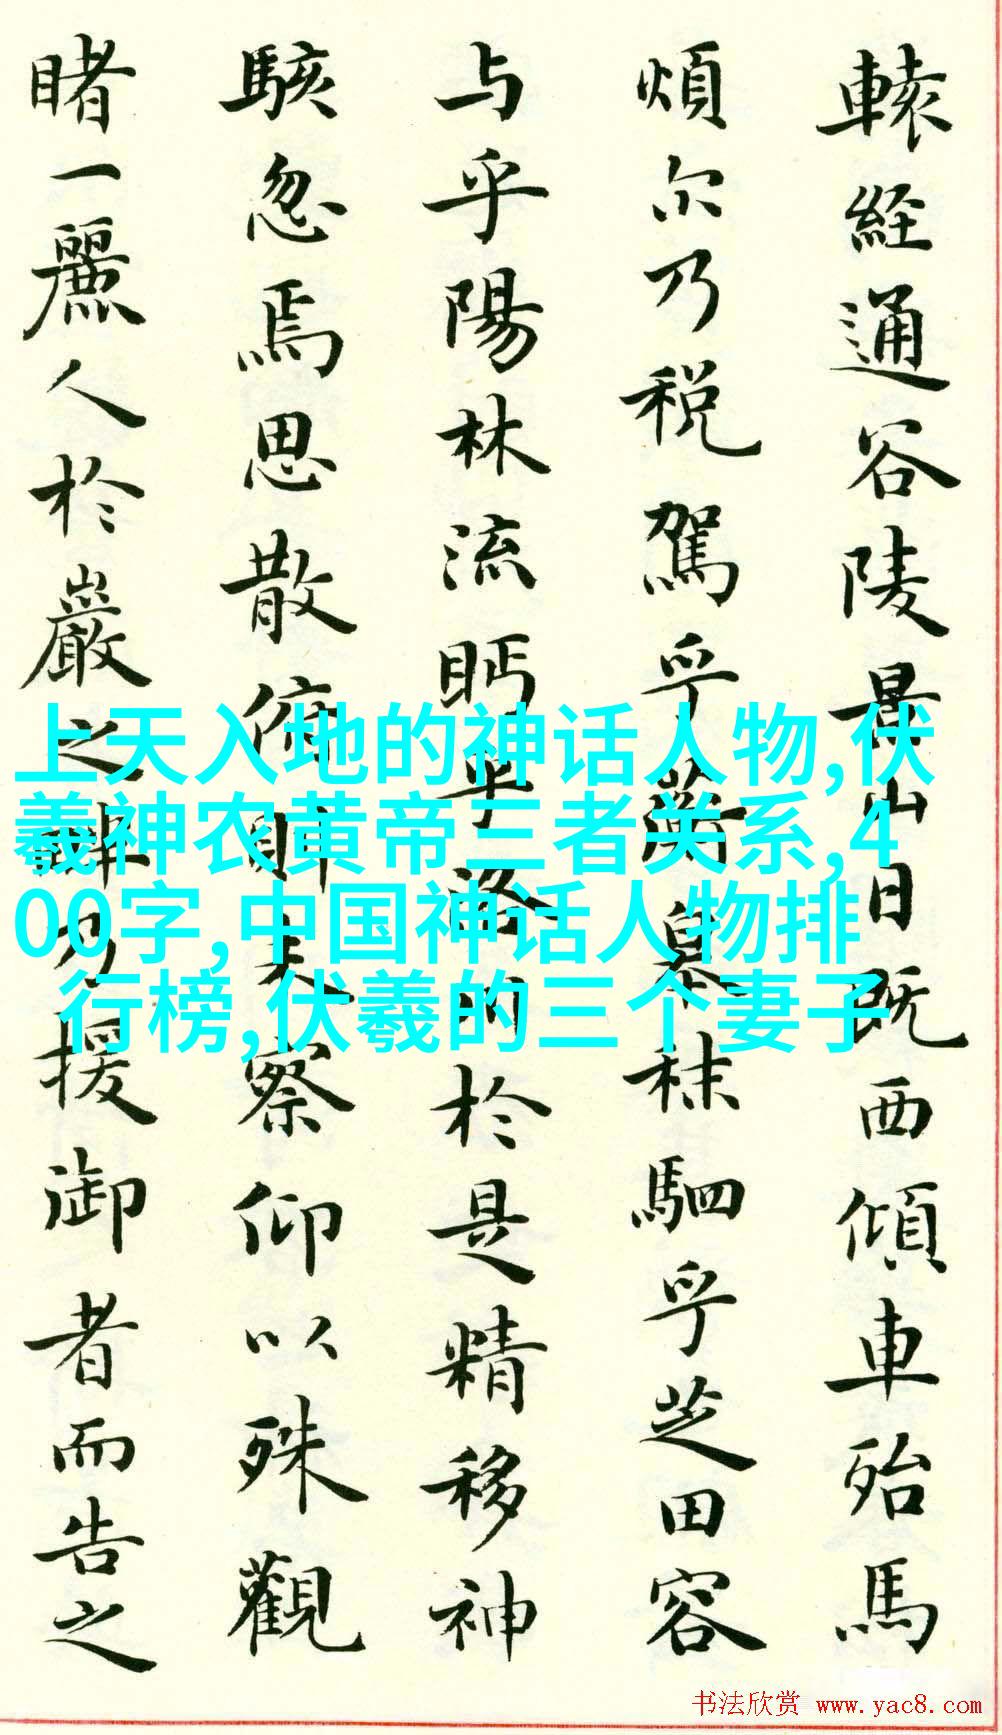 轅経通谷陵景山日既西傾車殆馬
煩尔乃税駕乎蘅皋秣駟乎芝田容
与乎陽林流眄乎洛川於是精移神
駭忽焉思散俯則未察仰以殊觀
睹一麗人於巖之畔乃援御者而告之
上天入地的神话人物,伏
羲神农黄帝三者关系,4
00字,中国神话人物排
行榜,伏羲的三个妻子
书法欣赏 www.yac8.com